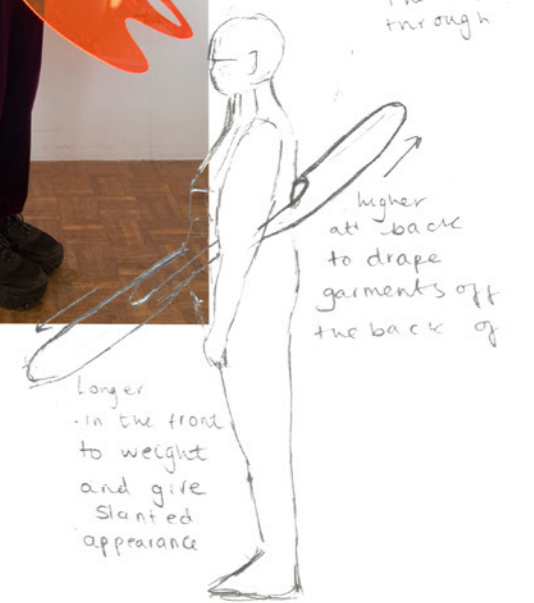 through
higher
at back
to drape
garments off
the back of
Longer
- in the front
to weight
and give
slanted
appearance